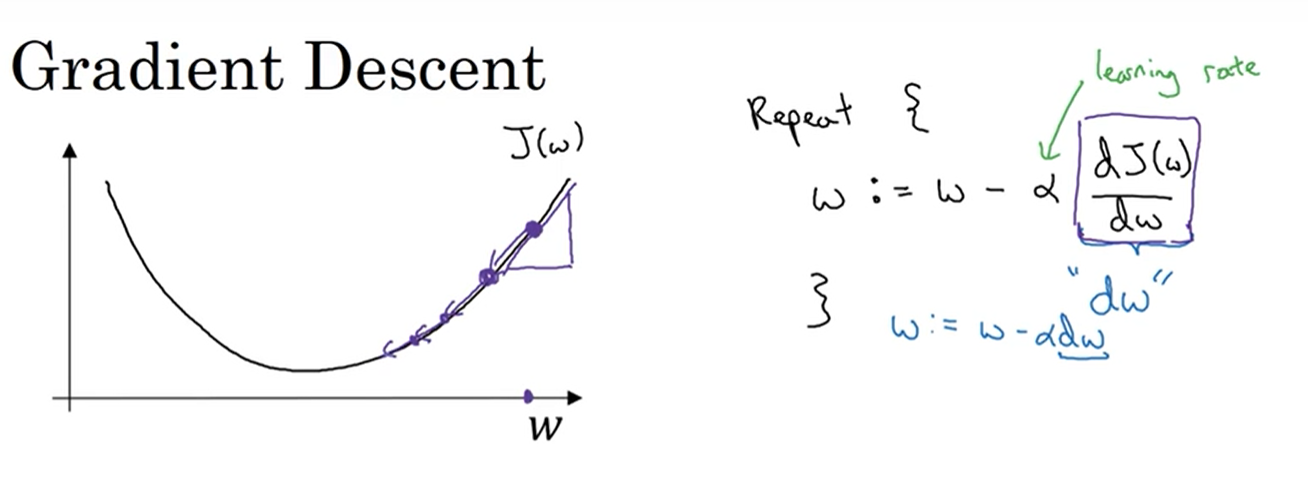 Gradient Descent
J(ω)
w
learning rate
Repeat {
ω := ω - α dJ(ω)/dω
"dω"
}
ω := ω - αdω